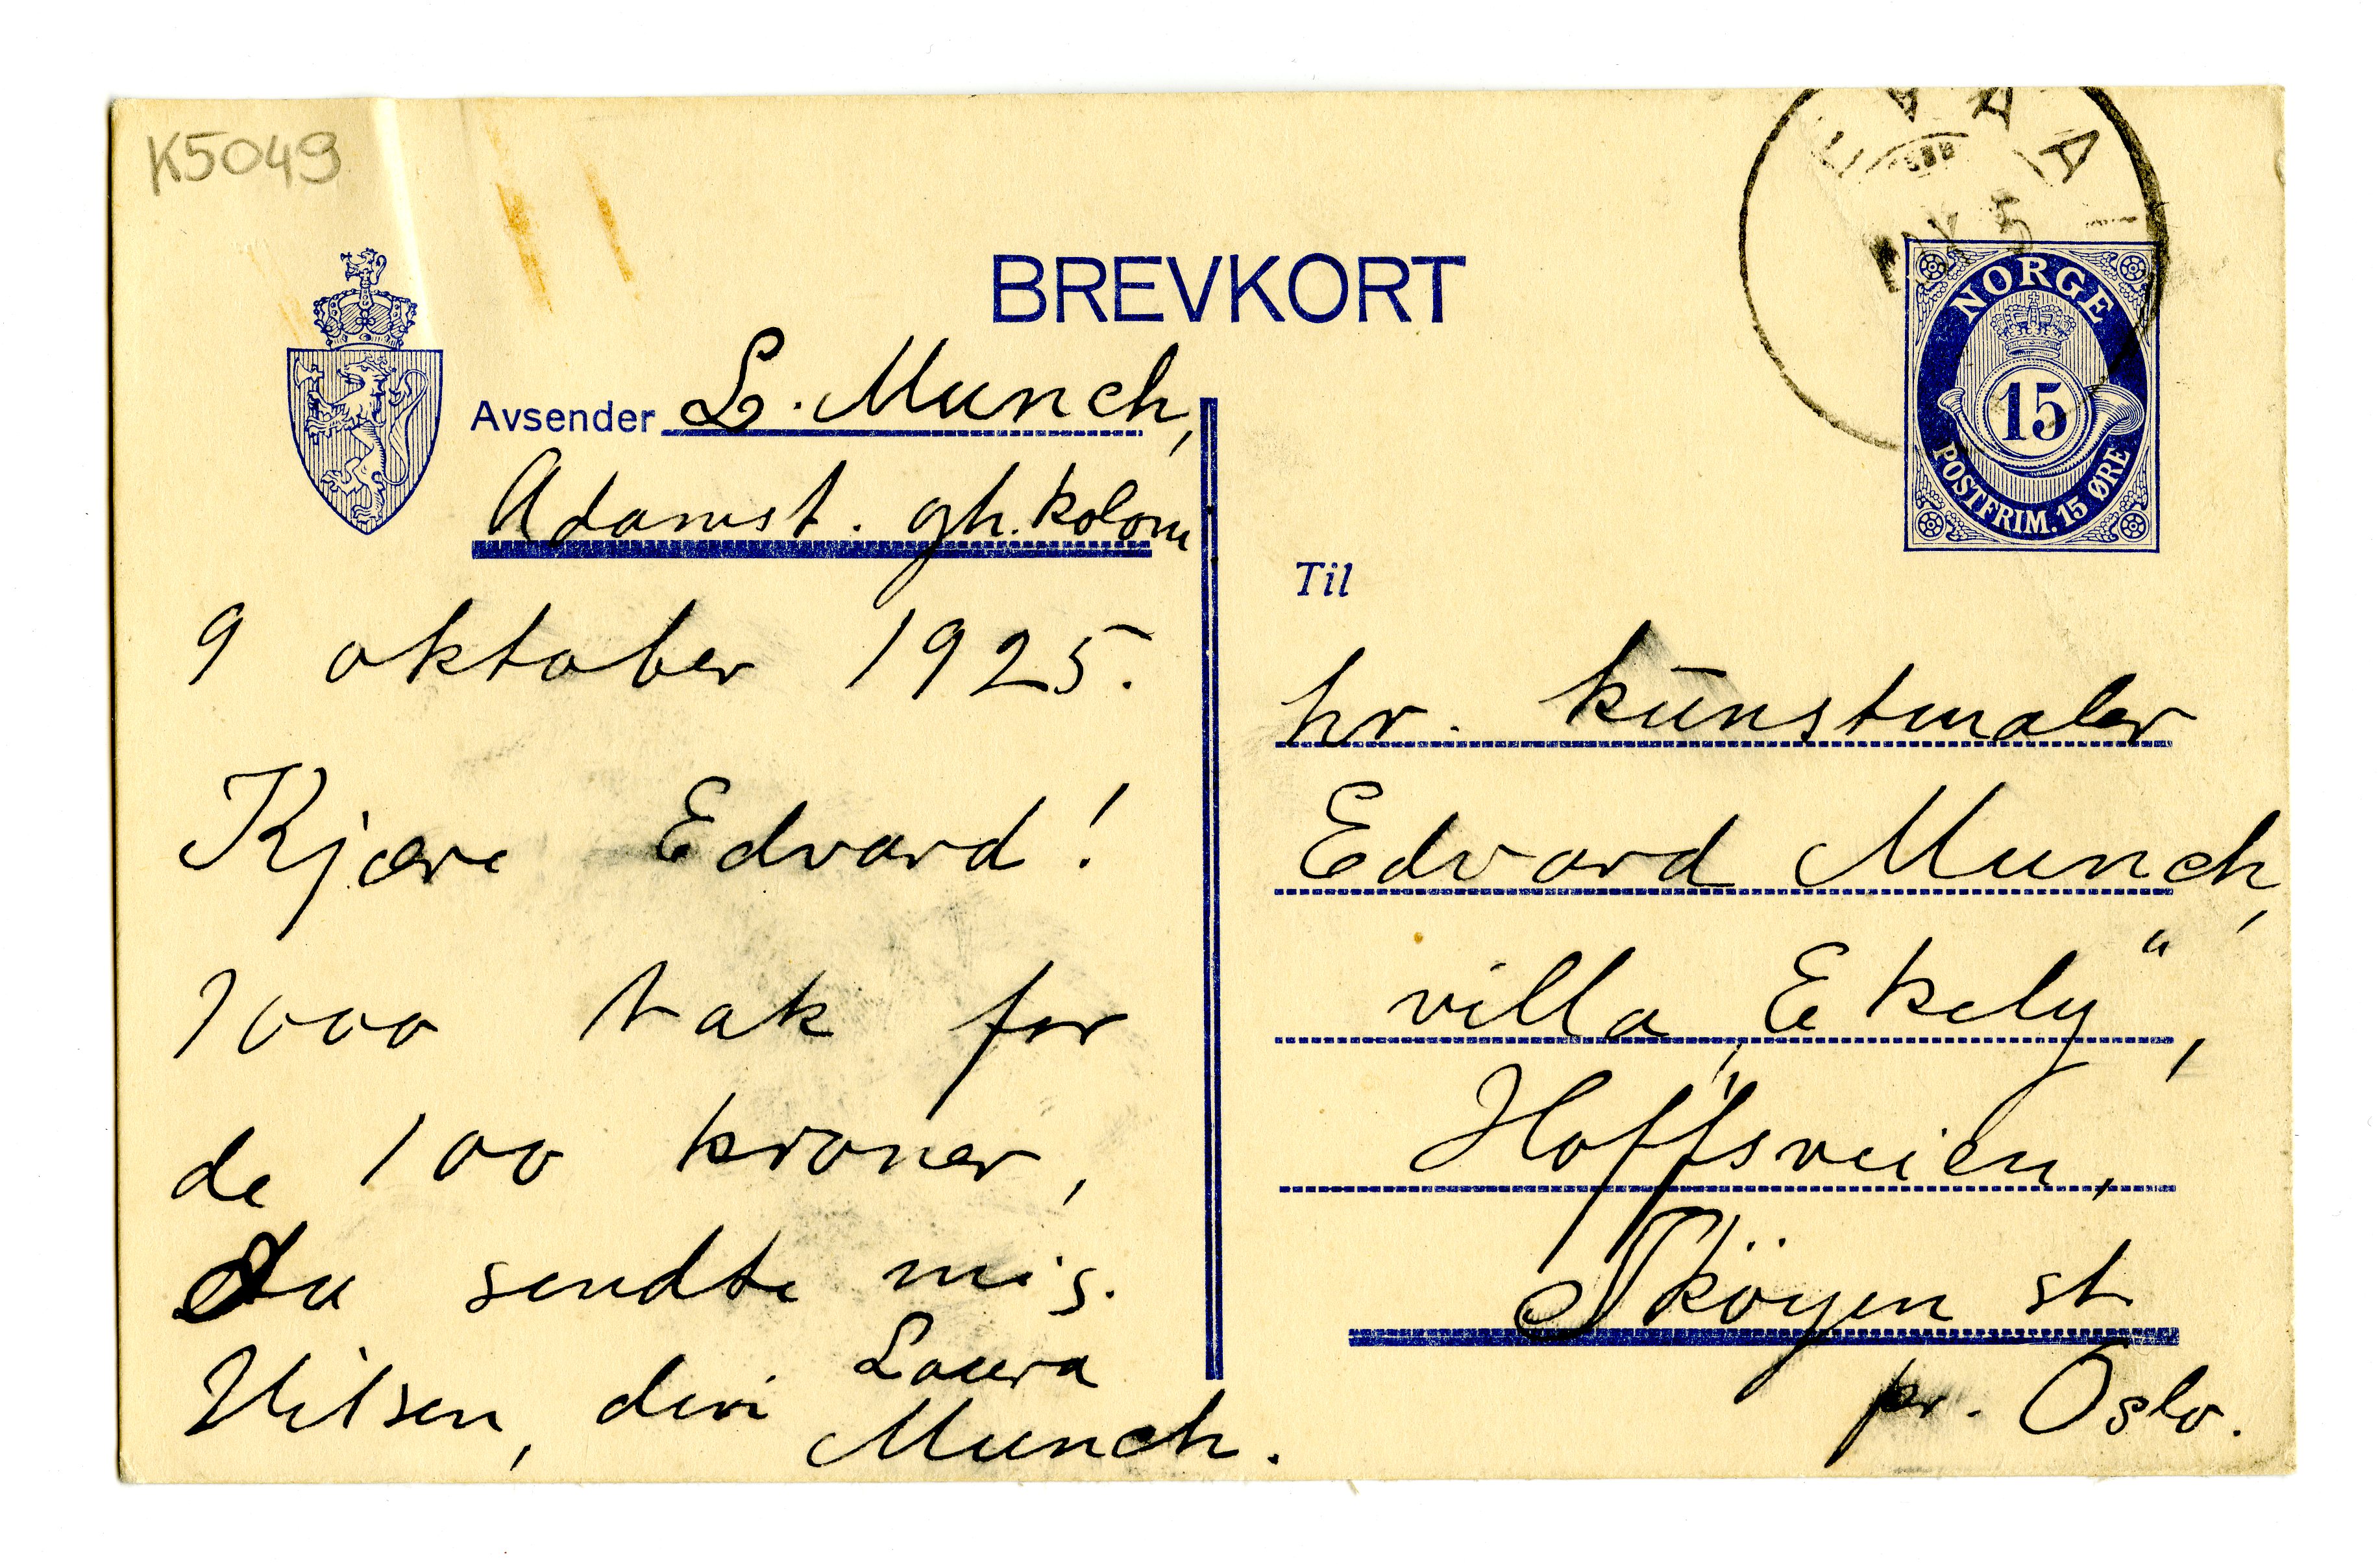 K5049
BREVKORT
NORGE
15
POSTFRIM. 15 ØRE
Avsender L. Munch,
Adamst. gh. koloni
9 oktober 1925.
Kjære Edvard!
1000 tak for
de 100 kroner,
du sendte mig.
Hilsen, din Laura
Munch.
Til
hr. kūnstmaler
Edvard Munch,
villa „Ekely“,
Hoffsveien,
Sköyen st
pr. Oslo.